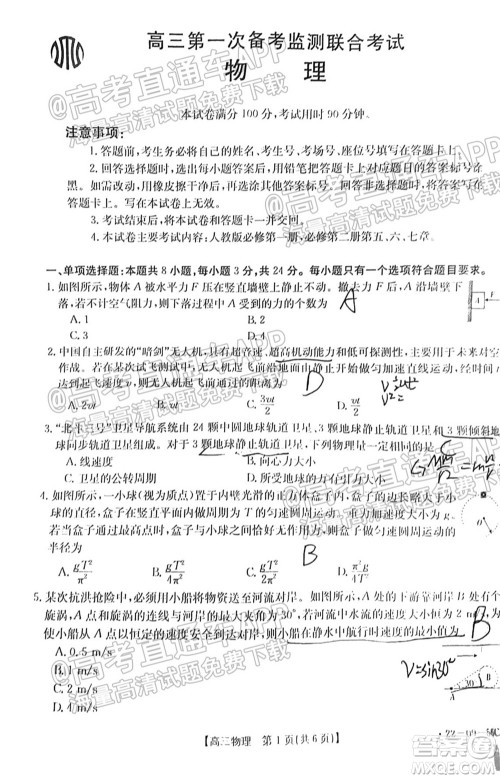 高三第一次备考监测联合考试
物 理
本试卷满分100分,考试用时90分钟。
注意事项:
1.答题前,考生务必将自己的姓名、考生号、考场号、座位号填写在答题卡上。
2.回答选择题时,选出每小题答案后,用铅笔把答题卡上对应题目的答案标号涂黑。
如需改动,用橡皮擦干净后,再选涂其他答案标号。回答非选择题时,将答案写在答题卡
上。写在本试卷上无效。
3.考试结束后,将本试卷和答题卡一并交回。
4.本试卷主要考试内容:人教版必修第一册,必修第二册第五、六、七章。
一、单项选择题:本题共8小题,每小题3分,共24分。每小题只有一个选项符合题目要求。
1.如图所示,物体A被水平力F压在竖直墙壁上静止不动。撤去力F后,A沿墙壁下
落的过程中A受到的力的个数为 A
A.1 B.2
C.3 D.4
F
2.中国自主研发的“暗剑”无人机,具有超音速、超高机动能力和低可探测性,主要用于未来对空作
战。若在某次试飞测试中,无人机起飞前沿地面由静止开始做匀加速直线运动,经过时间t达
到起飞速度v,则无人机在时间t内的运动距离为 D
A.2vt B.3vt/2 C.vt D.vt/2
3.“北斗三号”卫星导航系统由24颗中圆地球轨道卫星、3颗地球静止轨道卫星和3颗倾斜地
球同步轨道卫星组成。对于3颗地球静止轨道卫星,下列物理量一定相同的是 C
A.线速度 B.向心力大小
C.卫星的公转周期 D.所受地球的万有引力大小
4.如图所示,一小球(视为质点)在一内壁光滑的正方体盒子中,盒子的棱长略大于小球
的直径,盒子在竖直平面内以一定的速度做匀速圆周运动,盒子的运动周期为T。
若盒子通过最高点时,盒子与小球间恰好没有作用力,则盒子做匀速圆周运动的
半径为 B
A.gT²/π² B.gT²/4π² C.gT²/2π² D.2gT²/π²
5.某次抗洪抢险中,必须用小船将物资送至河流对岸。如图所示,A处的下游靠河岸B处有个
旋涡,A点和旋涡的连线与河岸的最大夹角为30°,若河流中水流的速度大小恒为2 m/s,为
使小船从A点以恒定的速度安全到达对岸,则小船在静水中航行时速度的最小值为 B
A.0.5 m/s
B.1 m/s
C.2 m/s
D.4 m/s
V=sin30°
A 30° B
【高三物理 第1页(共6页)】
@高考直通车APP
海量高清试题免费下载